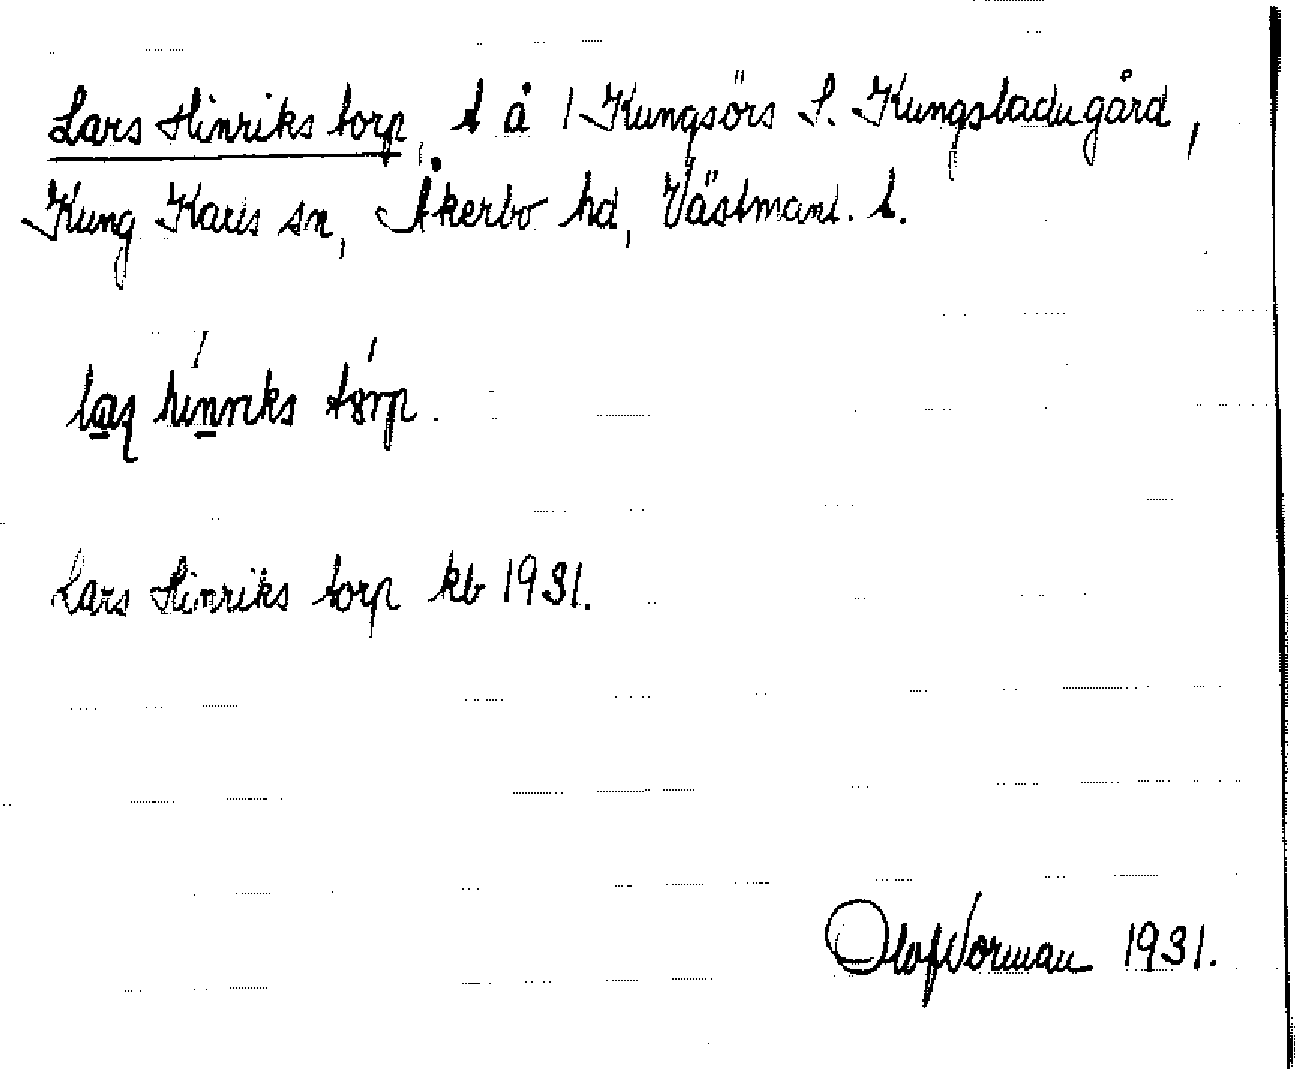 Lars Hinriks torp, t å 1 Kungsörs S. Kungsladugård,
Kung Karls sn, Åkerbo hd, Västmanl. l.
hinriks torp.
Lars Hinriks torp kb 1931.
Olof Norman 1931.